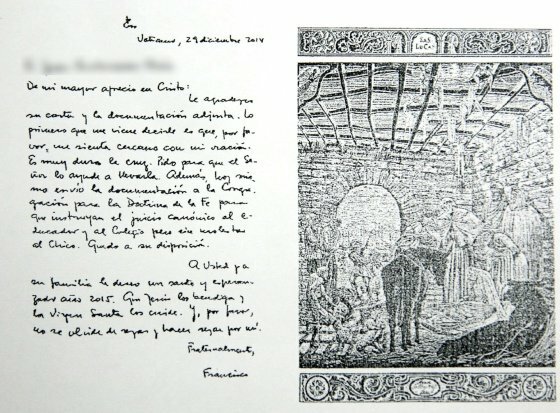 Vaticano, 29 diciembre 2014
De mi mayor aprecio en Cristo:
Le agradezco
su carta y la documentación adjunta. Lo
primero que me viene decirle es que, por fa-
vor, me sienta cercano con mi oración.
Es muy dura la cruz. Pido para que el Se-
ñor lo ayude a llevarla. Además, hoy mis-
mo envío la documentación a la Congre-
gación para la Doctrina de la Fe para
que instruyan el juicio canónico al e-
ducador y al Colegio pero sin molestar
al chico. Quedo a su disposición.
A Usted y a
su familia le deseo un santo y esperan-
zado año 2015. Que Jesús los bendiga y
la Virgen Santa los cuide. Y, por favor,
no se olvide de rezar y hacer rezar por mí.
Fraternalmente,
Francisco